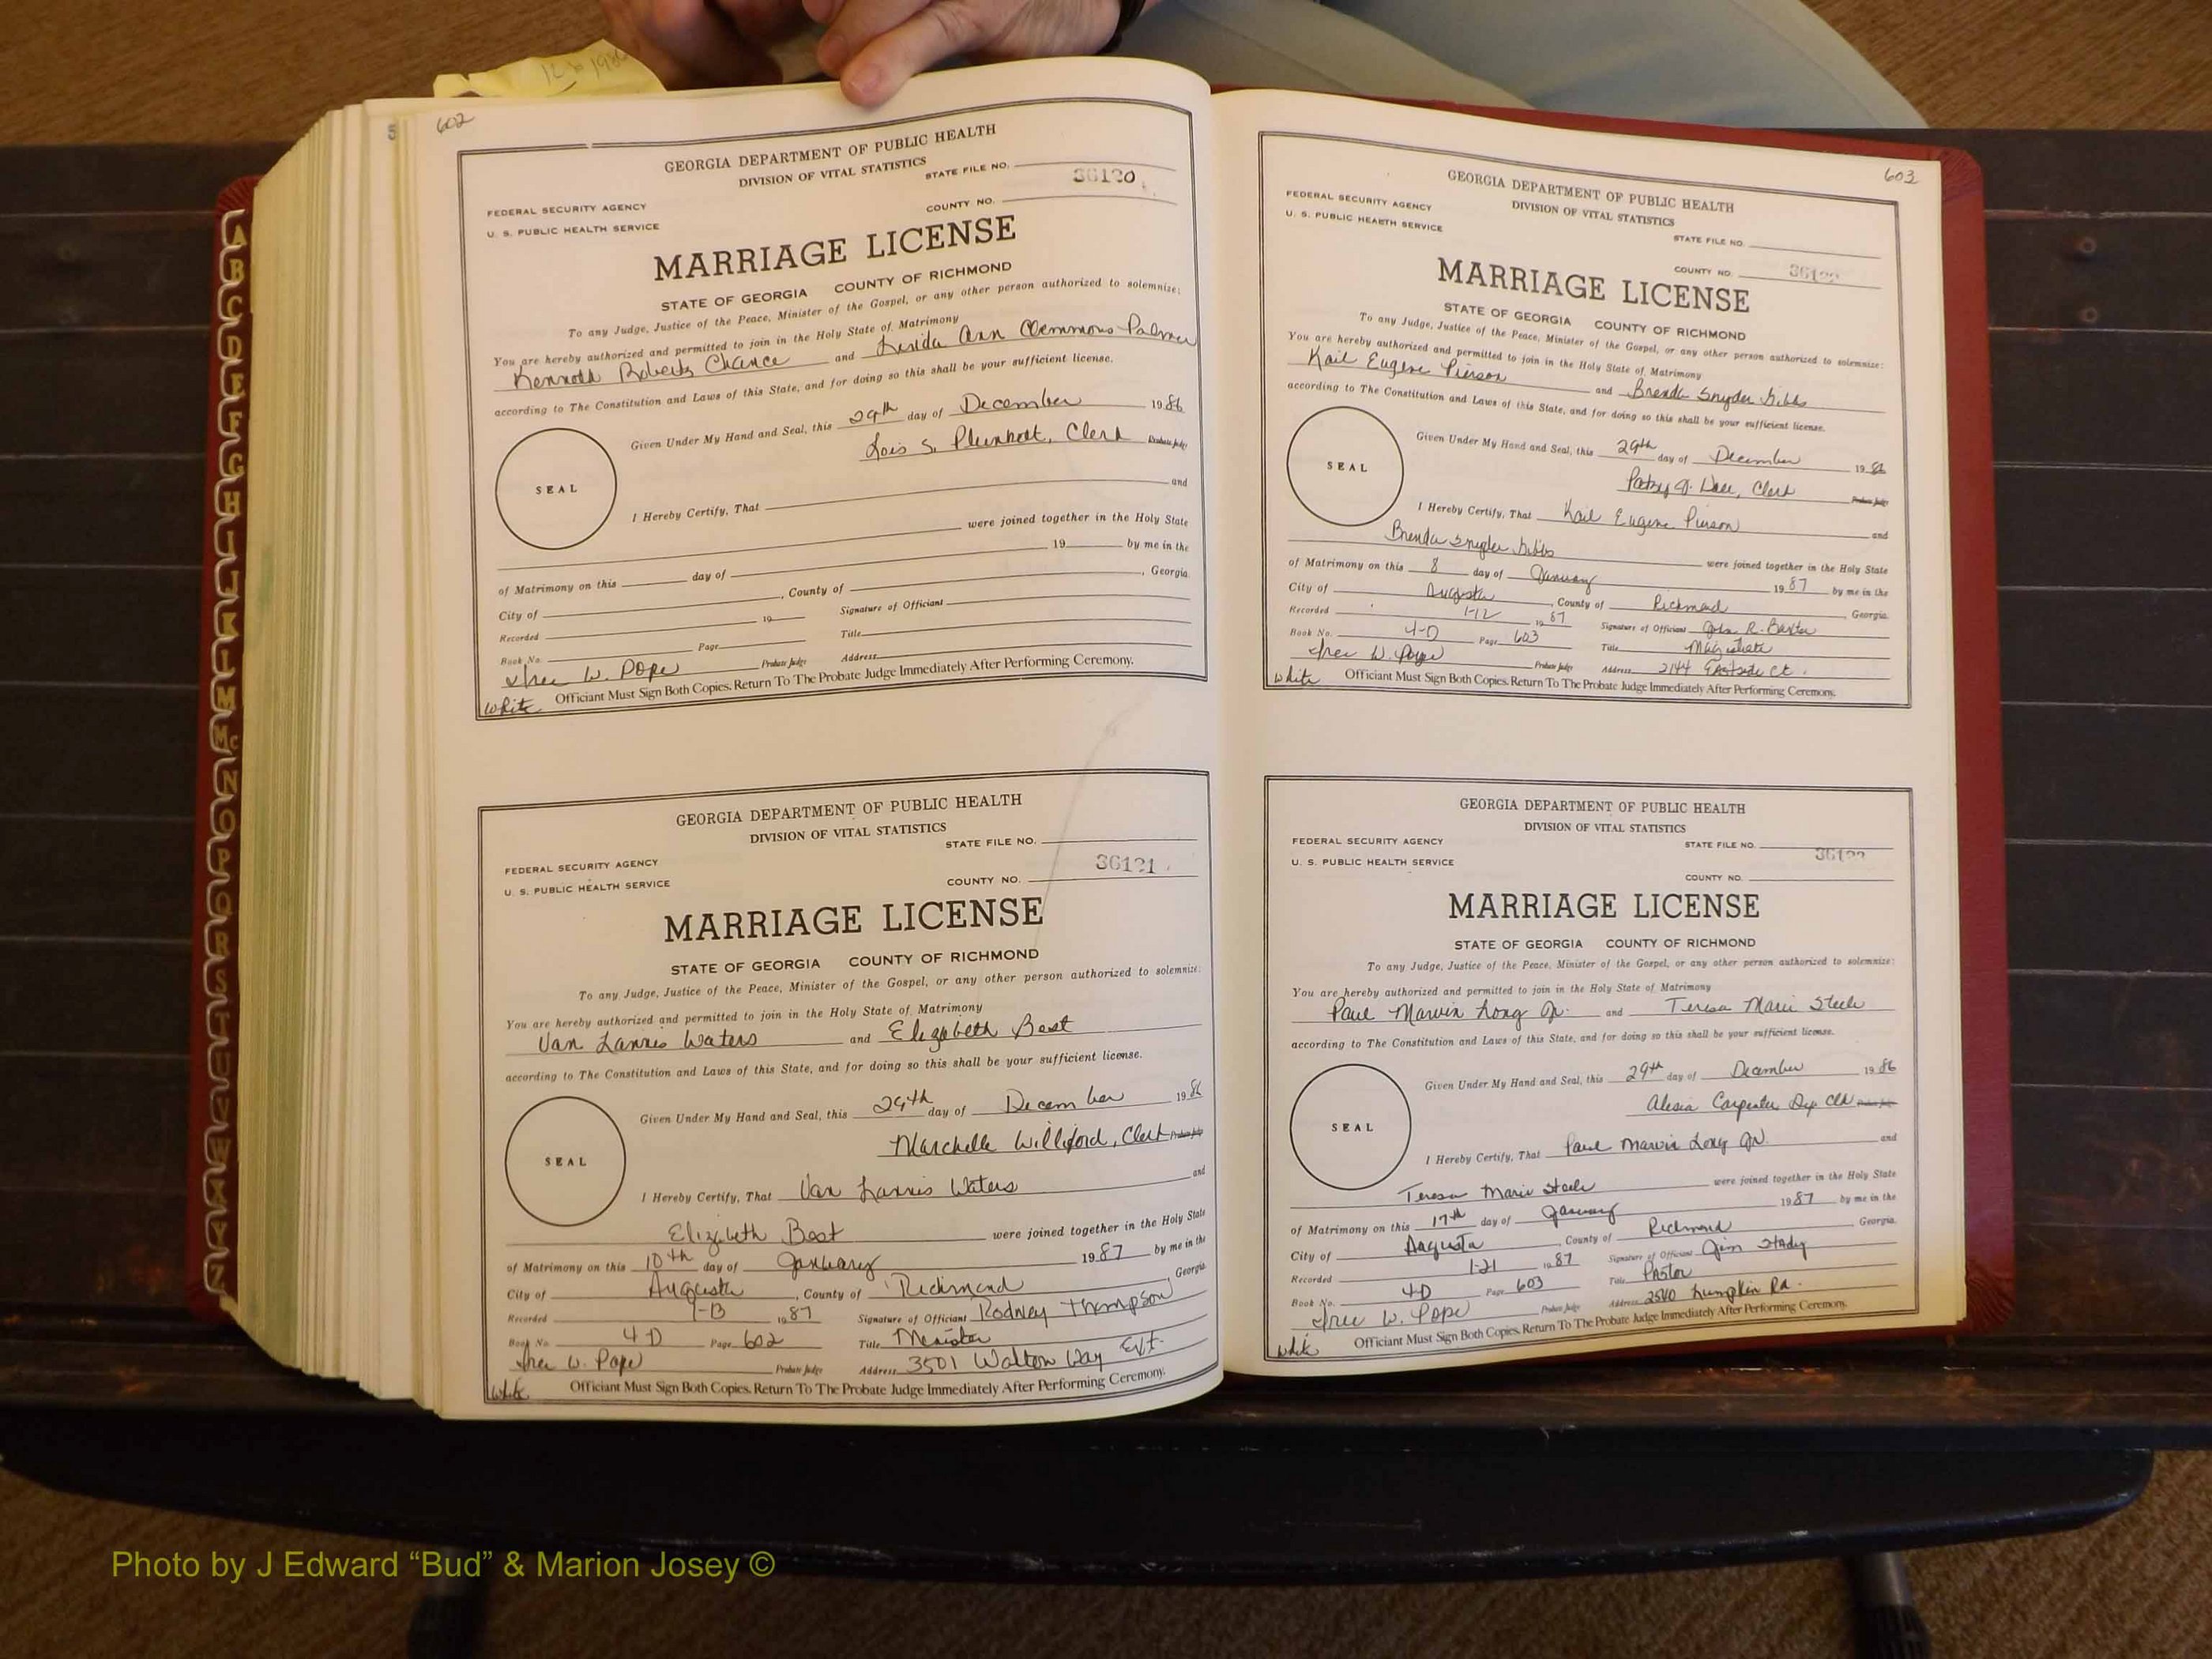 12 1986
A
B
C
D
E
F
G
H
I
J
K
L
M
Mc
N
O
P
Q
R
S
T
U
V
W
X
Y
Z
5
602
GEORGIA DEPARTMENT OF PUBLIC HEALTH
DIVISION OF VITAL STATISTICS
STATE FILE NO. 36120
FEDERAL SECURITY AGENCY
COUNTY NO.
U. S. PUBLIC HEALTH SERVICE
MARRIAGE LICENSE
STATE OF GEORGIA COUNTY OF RICHMOND
To any Judge, Justice of the Peace, Minister of the Gospel, or any other person authorized to solemnize:
You are hereby authorized and permitted to join in the Holy State of Matrimony
Kenneth Roberts Chance and Linda Ann Clemmons Palmer
according to The Constitution and Laws of this State, and for doing so this shall be your sufficient license.
Given Under My Hand and Seal, this 29th day of December 1986
Lois S. Plunkett, Clerk Probate Judge
SEAL
I Hereby Certify, That and
were joined together in the Holy State
of Matrimony on this day of 19 by me in the
City of , County of , Georgia
Recorded 19 Signature of Officiant
Book No. Page Title
W. Pope Probate Judge Address
White Officiant Must Sign Both Copies. Return To The Probate Judge Immediately After Performing Ceremony.
GEORGIA DEPARTMENT OF PUBLIC HEALTH
DIVISION OF VITAL STATISTICS
STATE FILE NO.
FEDERAL SECURITY AGENCY
COUNTY NO. 36121
U. S. PUBLIC HEALTH SERVICE
MARRIAGE LICENSE
STATE OF GEORGIA COUNTY OF RICHMOND
To any Judge, Justice of the Peace, Minister of the Gospel, or any other person authorized to solemnize:
You are hereby authorized and permitted to join in the Holy State of Matrimony
Van Lannis Waters and Elizabeth Best
according to The Constitution and Laws of this State, and for doing so this shall be your sufficient license.
Given Under My Hand and Seal, this 29th day of December 1986
Marchelle Williford, Clerk Probate Judge
SEAL
I Hereby Certify, That Van Lannis Waters and
Elizabeth Best were joined together in the Holy State
of Matrimony on this 10th day of January 1987 by me in the
City of Augusta , County of Richmond Georgia
Recorded 1-13 1987 Signature of Officiant Rodney Thompson
Book No. 4-D Page 602 Title Minister
W. Pope Probate Judge Address 3501 Walton Way Ext.
White Officiant Must Sign Both Copies. Return To The Probate Judge Immediately After Performing Ceremony.
603
GEORGIA DEPARTMENT OF PUBLIC HEALTH
DIVISION OF VITAL STATISTICS
FEDERAL SECURITY AGENCY
U. S. PUBLIC HEALTH SERVICE
STATE FILE NO.
COUNTY NO.
MARRIAGE LICENSE
STATE OF GEORGIA COUNTY OF RICHMOND
To any Judge, Justice of the Peace, Minister of the Gospel, or any other person authorized to solemnize:
You are hereby authorized and permitted to join in the Holy State of Matrimony
Kail Eugene Pierson and Brenda Snyder Gibbs
according to The Constitution and Laws of this State, and for doing so this shall be your sufficient license.
Given Under My Hand and Seal, this 29th day of December 1986
Clerk Probate Judge
SEAL
I Hereby Certify, That Kail Eugene Pierson and
Brenda Snyder Gibbs were joined together in the Holy State
of Matrimony on this 8 day of January 1987 by me in the
City of Augusta , County of Richmond Georgia
Recorded 1-12 1987 Signature of Officiant John R. Baxter
Book No. 4-D Page 603 Title Magistrate
W. Pope Probate Judge Address 2144 Eastside Ct.
White Officiant Must Sign Both Copies. Return To The Probate Judge Immediately After Performing Ceremony.
GEORGIA DEPARTMENT OF PUBLIC HEALTH
DIVISION OF VITAL STATISTICS
FEDERAL SECURITY AGENCY
STATE FILE NO.
U. S. PUBLIC HEALTH SERVICE
COUNTY NO.
MARRIAGE LICENSE
STATE OF GEORGIA COUNTY OF RICHMOND
To any Judge, Justice of the Peace, Minister of the Gospel, or any other person authorized to solemnize:
You are hereby authorized and permitted to join in the Holy State of Matrimony
Paul Marvin Long Jr. and Teresa Marie Steele
according to The Constitution and Laws of this State, and for doing so this shall be your sufficient license.
Given Under My Hand and Seal, this 29th day of December 1986
Alesia Carpenter Dep Clk Probate Judge
SEAL
I Hereby Certify, That Paul Marvin Long Jr. and
Teresa Marie Steele were joined together in the Holy State
of Matrimony on this 17th day of January 1987 by me in the
City of Augusta , County of Richmond Georgia
Recorded 1-21 1987 Signature of Officiant Jim Stady
Book No. 4D Page 603 Title Pastor
W. Pope Probate Judge Address 2540 Lumpkin Rd.
White Officiant Must Sign Both Copies. Return To The Probate Judge Immediately After Performing Ceremony.
Photo by J Edward “Bud” & Marion Josey ©